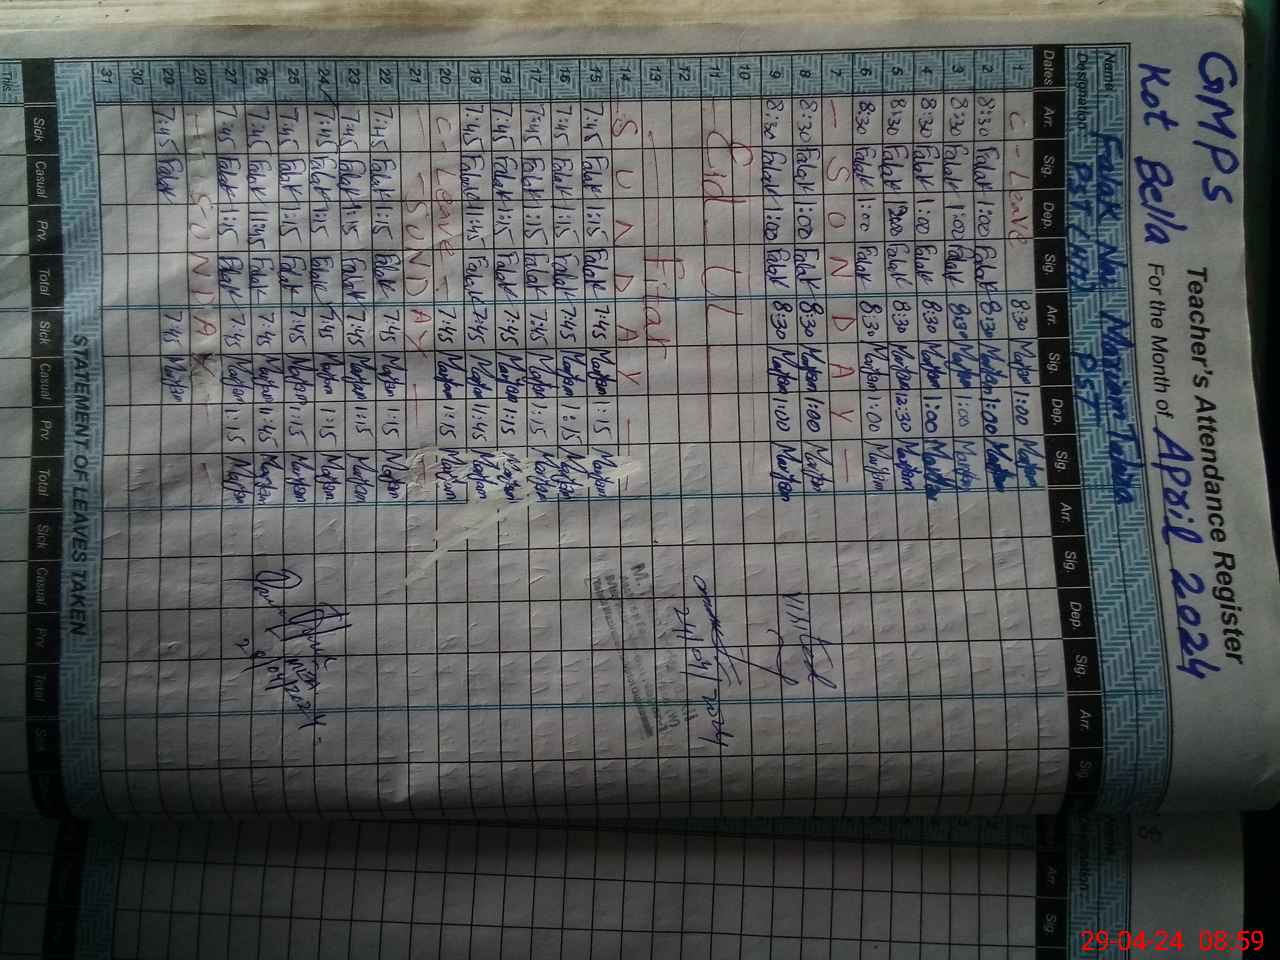 GMPS Teacher's Attendance Register
Kot Bella For the Month of April 2024
Name Falak Naz Mariam Tabba
Designation PST (H/T) PST
Dates Arr. Sig. Dep. Sig. Arr. Sig. Dep. Sig. Arr. Sig. Dep. Sig. Arr. Sig.
1 C-Leave 8:30 Maryam 1:00 Maryam
2 8:30 Falak 1:00 Falak 8:30 Maryam 1:00 Maryam
3 8:30 Falak 1:00 Falak 8:30 Maryam 1:00 Maryam
4 8:30 Falak 1:00 Falak 8:30 Maryam 1:00 Maryam
5 8:30 Falak Falak 8:30 Maryam 12:30 Maryam
6 8:30 Falak 1:00 Falak 8:30 Maryam 1:00 Maryam
7 — S O N D A Y —
8 8:30 Falak 1:00 Falak 8:30 Maryam 1:00 Maryam
9 8:30 Falak 1:00 Falak 8:30 Maryam 1:00 Maryam
10
11 Eid. UL
12
13 Fitar
14 S U N D A Y —
15 7:45 Falak 1:15 Falak 7:45 Maryam 1:15 Maryam
16 7:45 Falak 1:15 Falak 7:45 Maryam 1:15 Maryam
17 7:45 Falak 1:15 Falak 7:45 Maryam 1:15 Maryam
18 7:45 Falak 1:15 Falak 7:45 Maryam 1:15 Maryam
19 7:45 Falak 11:45 Falak 7:45 Maryam 11:45 Maryam
20 C-Leave - 7:45 Maryam 1:15 Maryam
21 — SUNDAY —
22 7:45 Falak 1:15 Falak 7:45 Maryam 1:15 Maryam
23 7:45 Falak 1:15 Falak 7:45 Maryam 1:15 Maryam
24 7:45 Falak 1:15 Falak 7:45 Maryam 1:15 Maryam
25 7:45 Falak 1:15 Falak 7:45 Maryam 1:15 Maryam
26 7:45 Falak 11:45 Falak 7:45 Maryam 11:45 Maryam
27 7:45 Falak 1:15 Falak 7:45 Maryam 1:15 Maryam
28 SUNDAY
29 7:45 Falak 7:45 Maryam
30
31
Visited
24/04/2024
STATEMENT OF LEAVES TAKEN
Sick Casual Prv. Total Sick Casual Prv. Total Sick Casual Prv. Total Sick
This
29-04-24 08:59